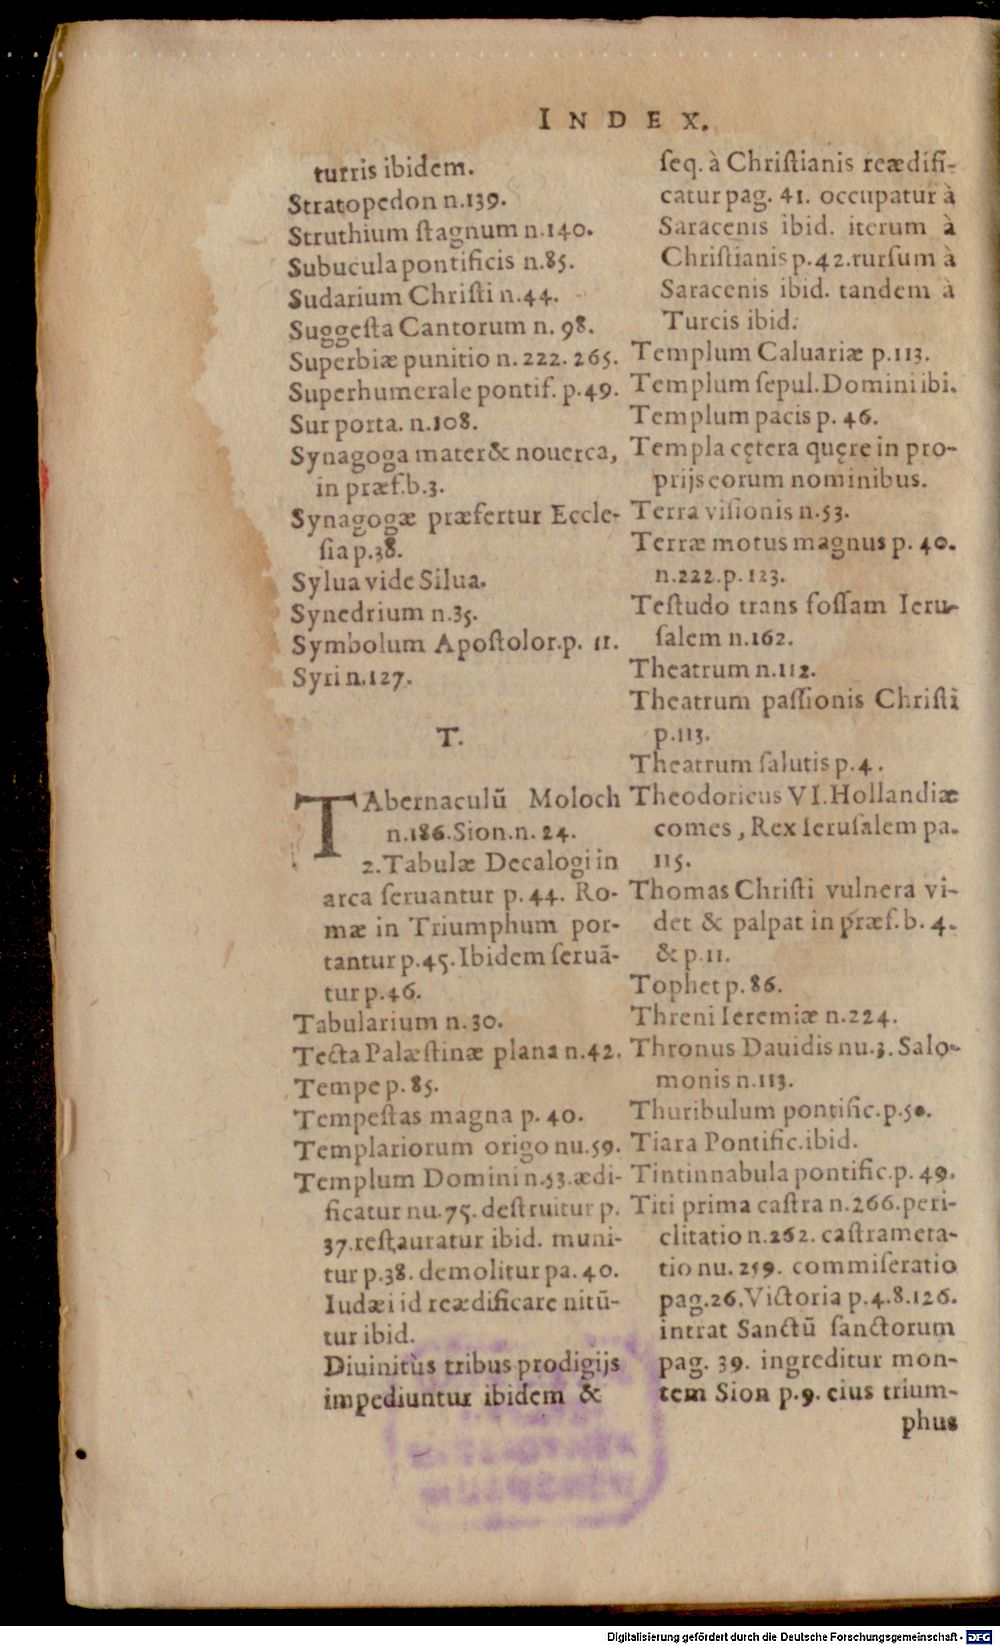 INDEX.
turris ibidem.
Stratopedon n.139.
Struthium ſtagnum n.140.
Subucula pontificis n.85.
Sudarium Chriſti n.44.
Suggeſta Cantorum n. 98.
Superbiæ punitio n. 222. 265.
Superhumerale pontif. p.49.
Sur porta. n.108.
Synagoga mater & nouerca,
in præf.b.3.
Synagogæ præfertur Eccle-
ſia p.38.
Sylua vide Silua.
Synedrium n.35.
Symbolum Apoſtolor.p. 11.
Syri n.127.
T.
TAbernaculū Moloch
n.186.Sion.n. 24.
2.Tabulæ Decalogi in
arca ſeruantur p. 44. Ro-
mæ in Triumphum por-
tantur p.45.Ibidem ſeruā-
tur p.46.
Tabularium n. 30.
Tecta Palæſtinæ plana n.42.
Tempe p. 85.
Tempeſtas magna p. 40.
Templariorum origo nu.59.
Templum Domini n.53.ædi-
ficatur nu.75. deſtruitur p.
37.reſtauratur ibid. muni-
tur p.38. demolitur pa. 40.
Iudæi id reædificare nitū-
tur ibid.
Diuinitùs tribus prodigijs
impediuntur ibidem &
ſeq. à Chriſtianis reædifi-
catur pag. 41. occupatur à
Saracenis ibid. iterum à
Chriſtianis p.42.rurſum à
Saracenis ibid. tandem à
Turcis ibid.
Templum Caluariæ p.113.
Templum ſepul.Domini ibi.
Templum pacis p. 46.
Templa cętera quęre in pro-
prijs eorum nominibus.
Terra viſionis n.53.
Terræ motus magnus p. 40.
n.222.p. 123.
Teſtudo trans foſſam Ieru-
ſalem n.162.
Theatrum n.112.
Theatrum paſſionis Chriſti
p.113.
Theatrum ſalutis p.4.
Theodoricus VI.Hollandiæ
comes, Rex Ieruſalem pa.
115.
Thomas Chriſti vulnera vi-
det & palpat in præf.b. 4.
& p.11.
Tophet p. 86.
Threni Ieremiæ n.224.
Thronus Dauidis nu.3. Salo-
monis n.113.
Thuribulum pontific.p.50.
Tiara Pontific.ibid.
Tintinnabula pontific.p. 49.
Titi prima caſtra n.266.peri-
clitatio n.262. caſtrameta-
tio nu. 259. commiſeratio
pag.26.Victoria p.4.8.126.
intrat Sanctū ſanctorum
pag. 39. ingreditur mon-
tem Sion p.9. eius trium-
phus
Digitalisierung gefördert durch die Deutsche Forschungsgemeinschaft - DFG